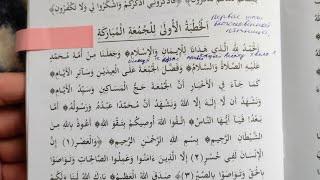 فَاذْكُرُونِي أَذْكُرْكُمْ وَاشْكُرُوا لِي وَلَا تَكْفُرُونِ
اَلْخُطْبَةُ الْأُولَى لِلْجُمُعَةِ الْمُبَارَكَةِ
اَلْحَمْدُ لِلَّهِ الَّذِي هَدَانَا لِلْإِيمَانِ وَالْإِسْلَامِ ۞ وَجَعَلَنَا مِنْ أُمَّةِ مُحَمَّدٍ
عَلَيْهِ الصَّلَاةُ وَالسَّلَامُ ۞ وَفَضَّلَ الْجُمُعَةَ عَلَى الْعِيدَيْنِ وَسَائِرِ الْأَيَّامِ ۞
كَمَا جَاءَ فِي الْأَخْبَارِ أَنَّ الْجُمُعَةَ حَجُّ الْمَسَاكِينِ وَسَيِّدُ الْأَيَّامِ ۞
وَنَشْهَدُ أَنْ لَا إِلَهَ إِلَّا اللَّهُ وَنَشْهَدُ أَنَّ مُحَمَّدًا عَبْدُهُ وَرَسُولُهُ ۞
أَيُّهَا النَّاسُ ۞ اتَّقُوا اللَّهَ أُوصِيكُمْ بِتَقْوَى اللَّهِ ۞ أَعُوذُ بِاللَّهِ مِنَ
الشَّيْطَانِ الرَّجِيمِ ۞ بِسْمِ اللَّهِ الرَّحْمَنِ الرَّحِيمِ ۞ وَالْعَصْرِ (١) إِنَّ
الْإِنْسَانَ لَفِي خُسْرٍ (٢) إِلَّا الَّذِينَ آمَنُوا وَعَمِلُوا الصَّالِحَاتِ وَتَوَاصَوْا
بِالْحَقِّ وَتَوَاصَوْا بِالصَّبْرِ (٣) صَدَقَ اللَّهُ الْعَظِيمُ ۞ بَارَكَ اللَّهُ لَنَا وَلَكُمْ